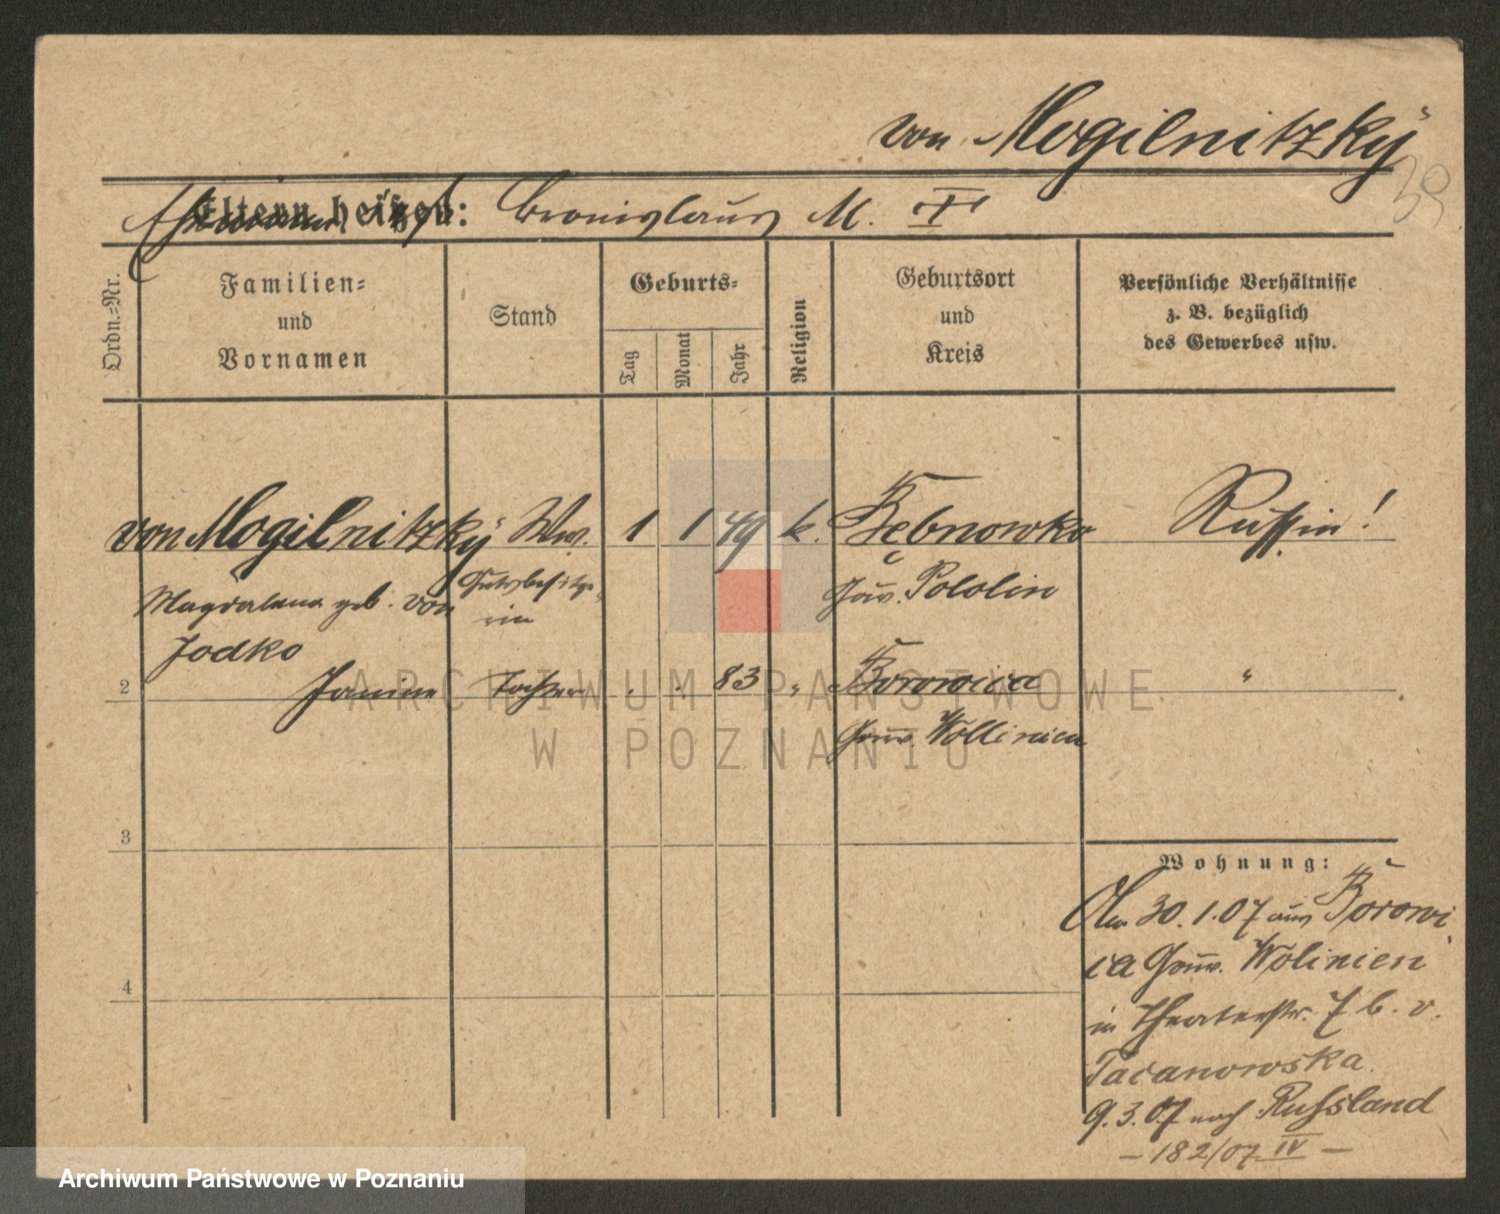 von Mogilnitzky
39
Eltern heißen: Bronislaus M. T
Ordn.-Nr.
Familien-
und
Vornamen
Stand
Geburts-
Tag
Monat
Jahr
Religion
Geburtsort
und
Kreis
Persönliche Verhältnisse
z. B. bezüglich
des Gewerbes usw.
von Mogilnitzky Ww. 1 1 49 k. Bębnowka Russin!
Magdalena geb. von Gutsbesitze-
rin
Gouv. Pololin
Jodko
2 Janine Tochter . . 83 " Borowica "
Gouv. Wollinien
3
4
Wohnung:
Am 30.1.07 aus Borowi
ca Gouv. Wolinien
in Theaterstr. 7 b. v.
Tacanowska.
9.3.07 nach Russland
- 182/07 IV -
ARCHIWUM PAŃSTWOWE
W POZNANIU
Archiwum Państwowe w Poznaniu